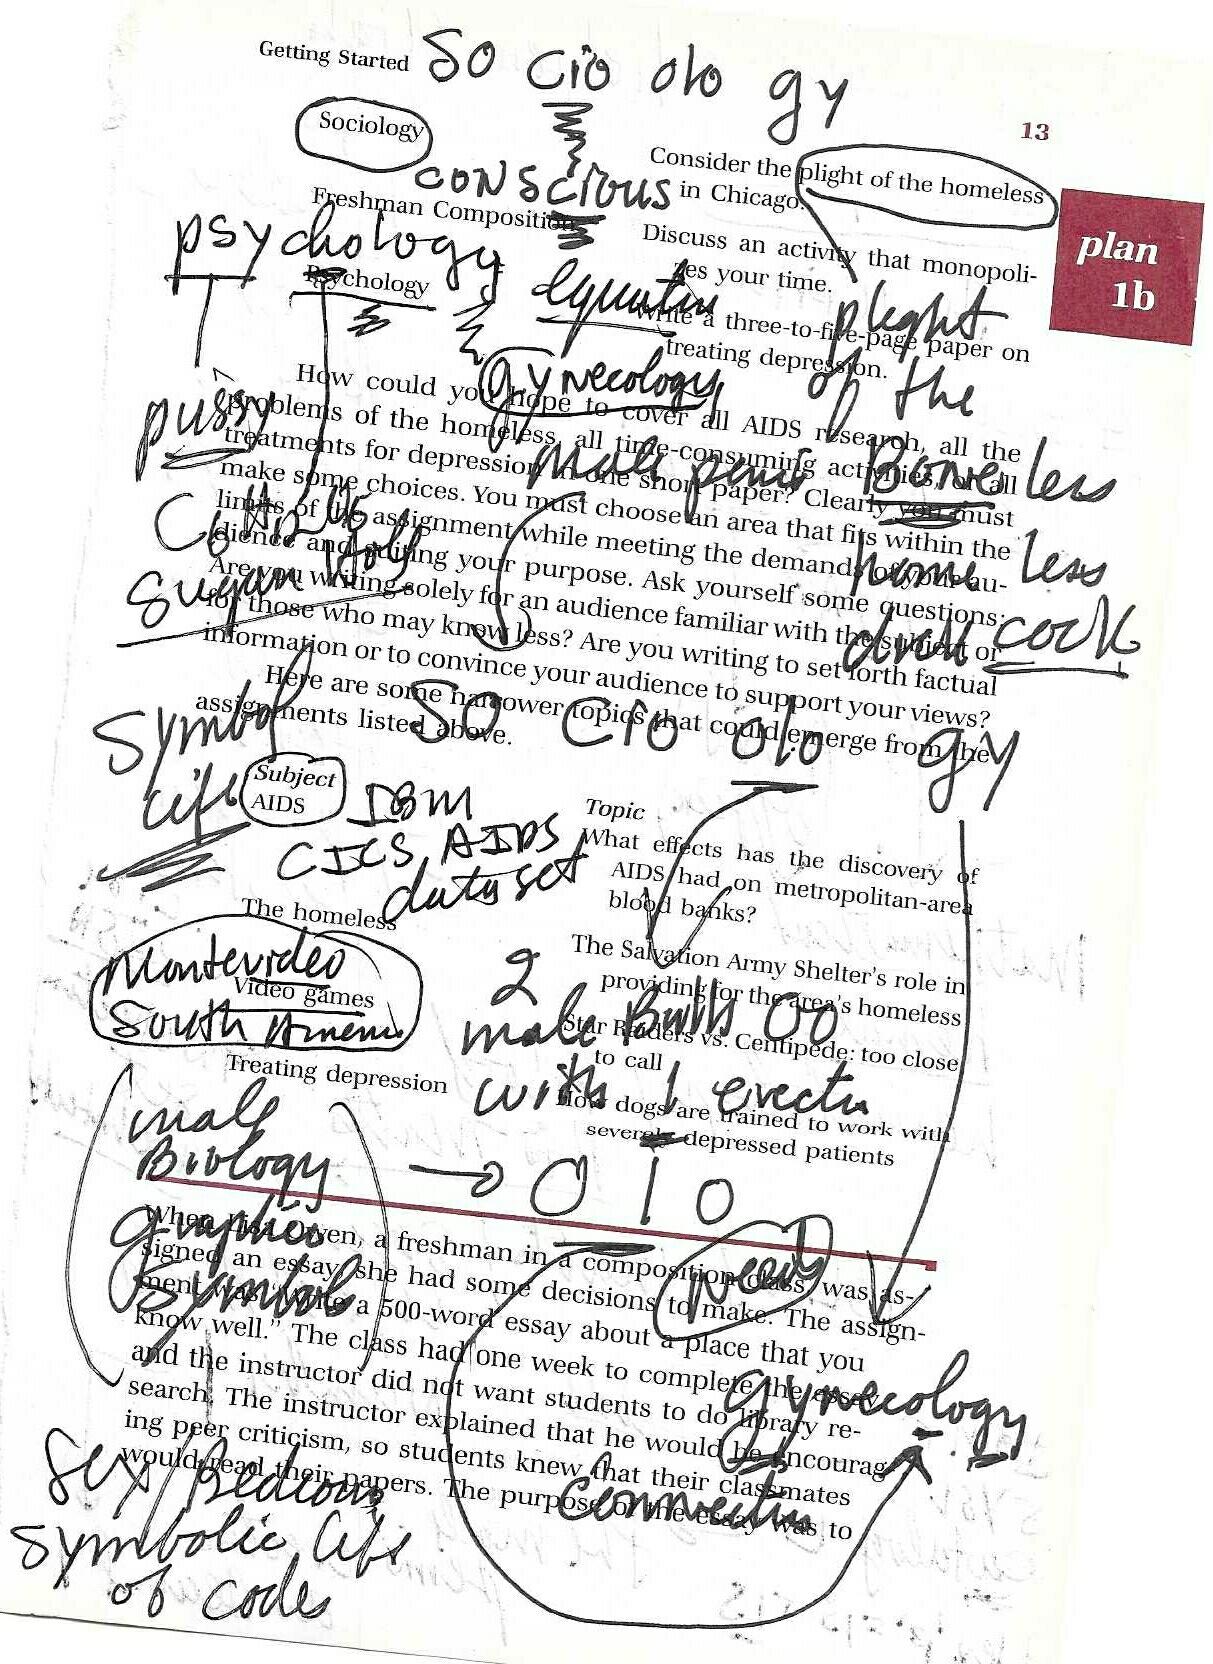 Getting Started SO CIO olo gy
13
Sociology
Consider the plight of the homeless
in Chicago.
CONSCIOUS
Freshman Composition
Discuss an activity that monopoli-
zes your time.
psychology
Psychology
equation
Write a three-to-five-page paper on
treating depression.
plan
1b
plight
of the
gynecology
How could you hope to cover all AIDS research, all the
problems of the homeless, all time-consuming activities, or all
treatments for depression in one short paper? Clearly you must
make some choices. You must choose an area that fits within the
limits of the assignment while meeting the demands of your au-
dience and suiting your purpose. Ask yourself some questions:
Are you writing solely for an audience familiar with the subject or
for those who may know less? Are you writing to set forth factual
information or to convince your audience to support your views?
Here are some narrower topics that could emerge from the
assignments listed above.
pussy
male penis Boneless
home less
Susan
COCK
SO CIO olo gy
Symbol
life
Subject
AIDS
IBM
CICS AIDS
dataset
Topic
What effects has the discovery of
AIDS had on metropolitan-area
blood banks?
The homeless
The Salvation Army Shelter's role in
providing for the area's homeless
Montevideo
Video games
South America
Star Raiders vs. Centipede: too close
to call
2
male Balls OO
with 1 erection
Treating depression
How dogs are trained to work with
severely depressed patients
male
Biology
graphics
symbols
O 1 O
When Lisa Owen, a freshman in a composition class, was as-
signed an essay, she had some decisions to make. The assign-
ment was "Write a 500-word essay about a place that you
know well." The class had one week to complete the essay,
and the instructor did not want students to do library re-
search. The instructor explained that he would be encourag-
ing peer criticism, so students knew that their classmates
would read their papers. The purpose of the essay was to
Needs
gynecology
connection
Sex/Bedroom
symbolic life
of codes